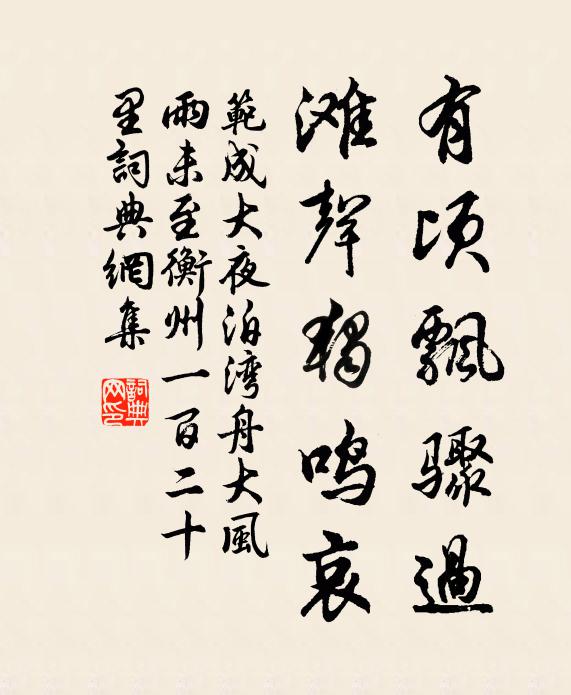 有顷飘骤過
滩聲獨鳴哀
範成大夜泊湾舟大風
雨未至衡州一百二十
里詞典網集
詞典网印